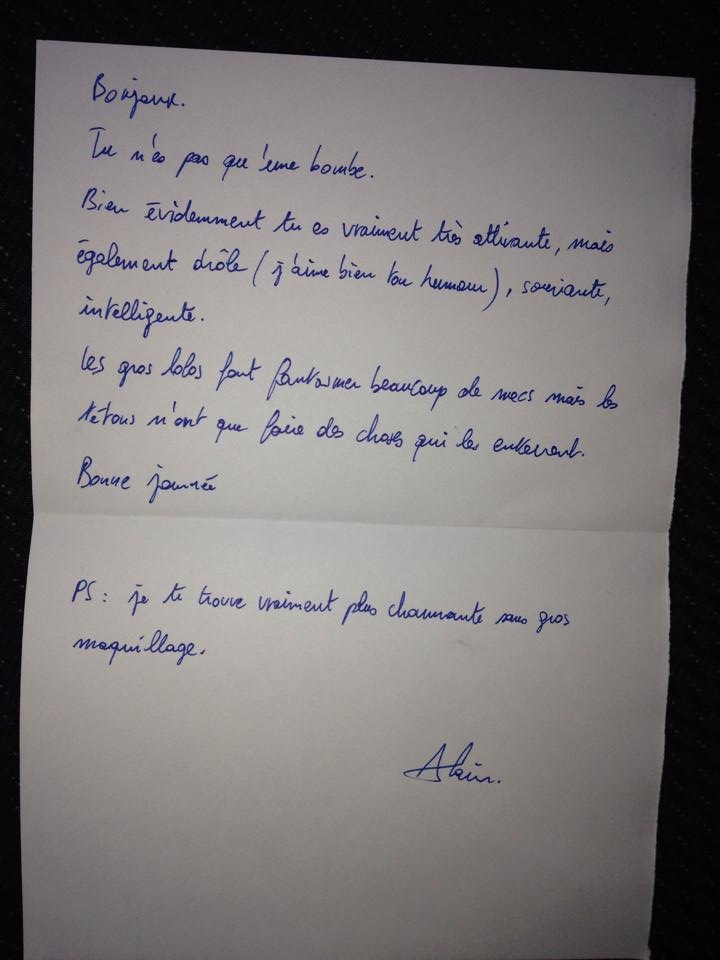 Bonjour.
Tu n'es pas qu'une bombe.
Bien évidemment tu es vraiment très attirante, mais
également drôle (j'aime bien ton humour), souriante,
intelligente.
Les gros lolos font fantasmer beaucoup de mecs mais les
tétons n'ont que faire des choses qui les entourent.
Bonne journée
PS : je te trouve vraiment plus charmante sans gros
maquillage.
Alain.